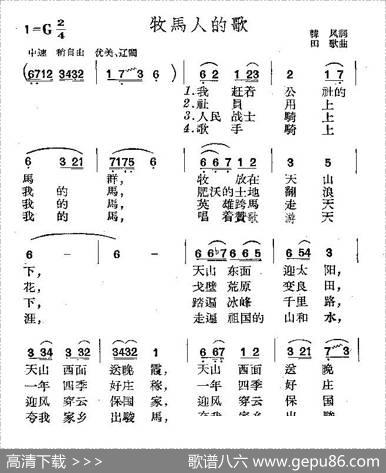 牧馬人的歌
1=G 2/4
中速 稍自由 优美、辽阔
韓 风詞
田 歌曲
(6712 3432 1 7 3 6) 6 2 1 23 2 1 7
1.我 赶着 公 社的
2.社 員 用 上
3.人民 战士 騎 上
4.歌 手 騎 上
6 3 21 7175 6 6 67 1 2 5 3
馬 群, 牧 放在 天 山
我 的 馬, 肥沃的 土地 翻 浪
我 的 馬, 英 雄 跨馬 走 天
我 的 馬, 唱 着 贊歌 游 天
6 - 6 - 6 6♭7 6 65 6 54 3
下, 天山 东面 迎太 阳,
花, 戈壁 荒原 变良 田,
下, 踏遍 冰峰 千里 路,
涯, 走遍 祖国的 山和 水,
3 34 3 2 3432 1 6 67 1 2 3 21 7 3
天山 西面 送晚 霞, 天山 西面 送 晚
一年 四季 好庄 稼, 一年 四季 好 庄
迎风 穿云 保国 家, 迎风 穿云 保 国
夸我 家乡 出駿 馬, 夸我 家乡 出 駿
高清下载 >>>
歌谱八六 www.gepu86.com